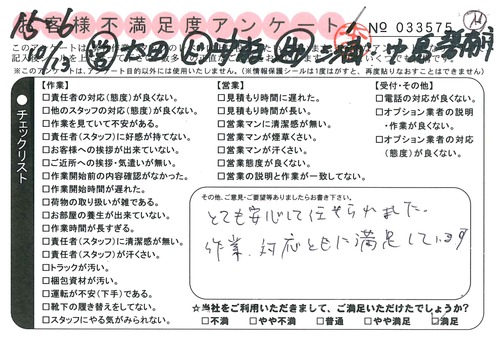 お客様不満足度アンケート
№ 033575
15-6
4/13
※このアンケートは、アンケート目的以外には使用いたしません。(※情報保護シールは1度はがすと、再度貼りなおすことはできません)
チェックリスト
【作業】
□責任者の対応(態度)が良くない。
□他のスタッフの対応(態度)が良くない。
□作業を見ていて不安がある。
□責任者(スタッフ)に好感が持てない。
□お客様への挨拶が出来ていない。
□ご近所への挨拶・気遣いが無い。
□作業開始前の内容確認がなかった。
□作業開始時間が遅れた。
□荷物の取り扱いが雑である。
□お部屋の養生が出来ていない。
□作業時間が長すぎる。
□責任者(スタッフ)に清潔感が無い。
□責任者(スタッフ)が汗くさい。
□トラックが汚い。
□梱包資材が汚い。
□運転が不安(下手)である。
□靴下の履き替えをしてない。
□スタッフにやる気がみられない。
【営業】
□見積もり時間に遅れた。
□見積もり時間が長い。
□営業マンに清潔感が無い。
□営業マンが煙草くさい。
□営業マンが汗くさい。
□営業態度が良くない。
□営業の説明と作業が一致してない。
【受付・その他】
□電話の対応が良くない。
□オプション業者の説明
・作業が良くない。
□オプション業者の対応
(態度)が良くない。
その他、ご意見・ご要望等ありましたらお書き下さい。
とても安心して任せられました。
作業、対応ともに満足しています
☆当社をご利用いただきまして、ご満足いただけたでしょうか?
□不満 □やや不満 □普通 □やや満足 □満足